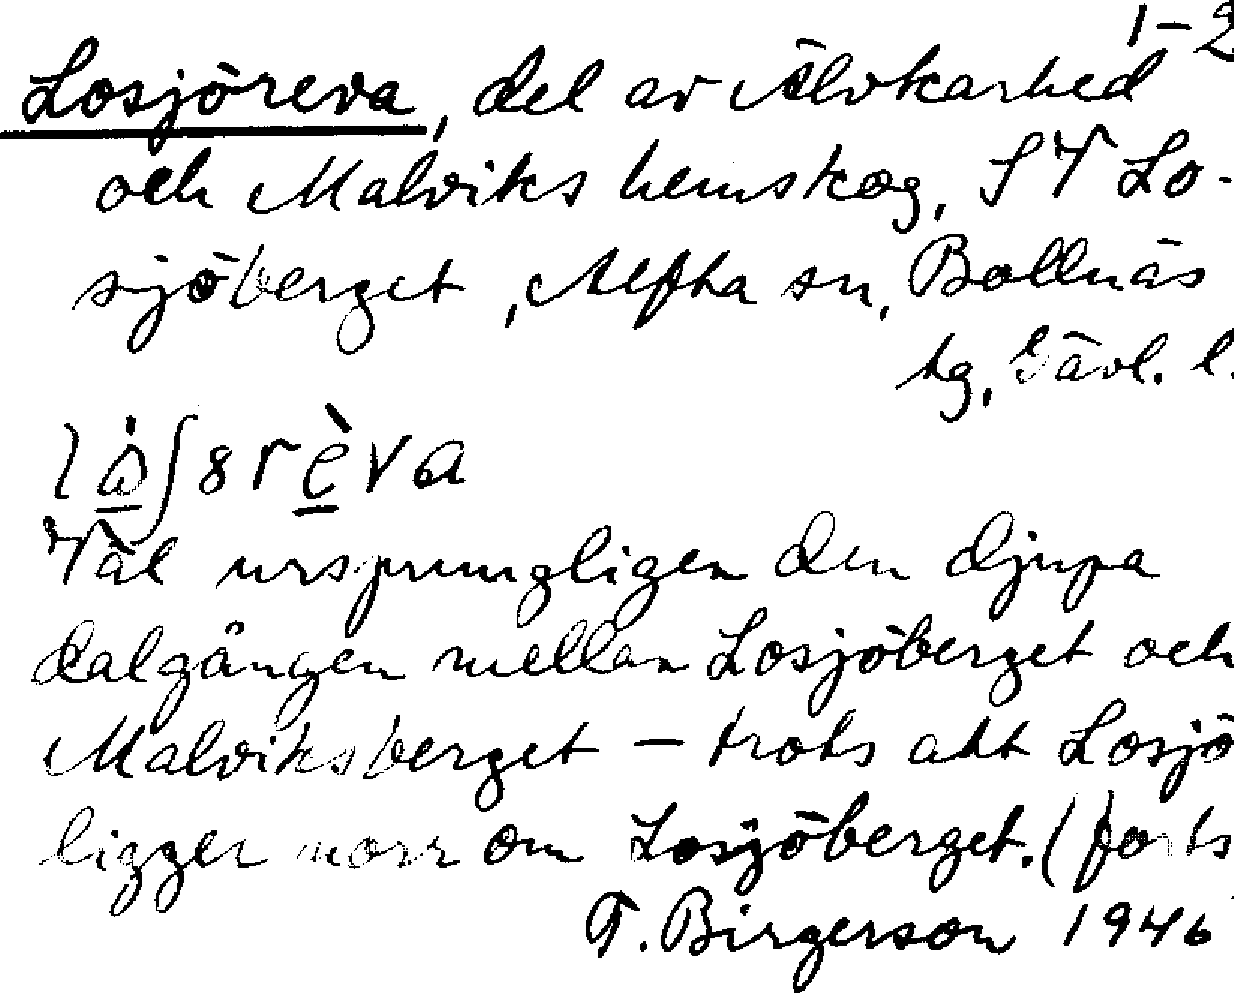 1–2
Losjöreva, del av Älvkarhed
och Malviks hemskog, SV Lo-
sjöberget, Alfta sn, Bollnäs
tg, Gävl. l.
lå̀ʃ8rèva
Väl ursprungligen den djupa
dalgången mellan Losjöberget och
Malviksberget – trots att Losjö
ligger norr om Losjöberget. (forts
T. Birgerson 1946